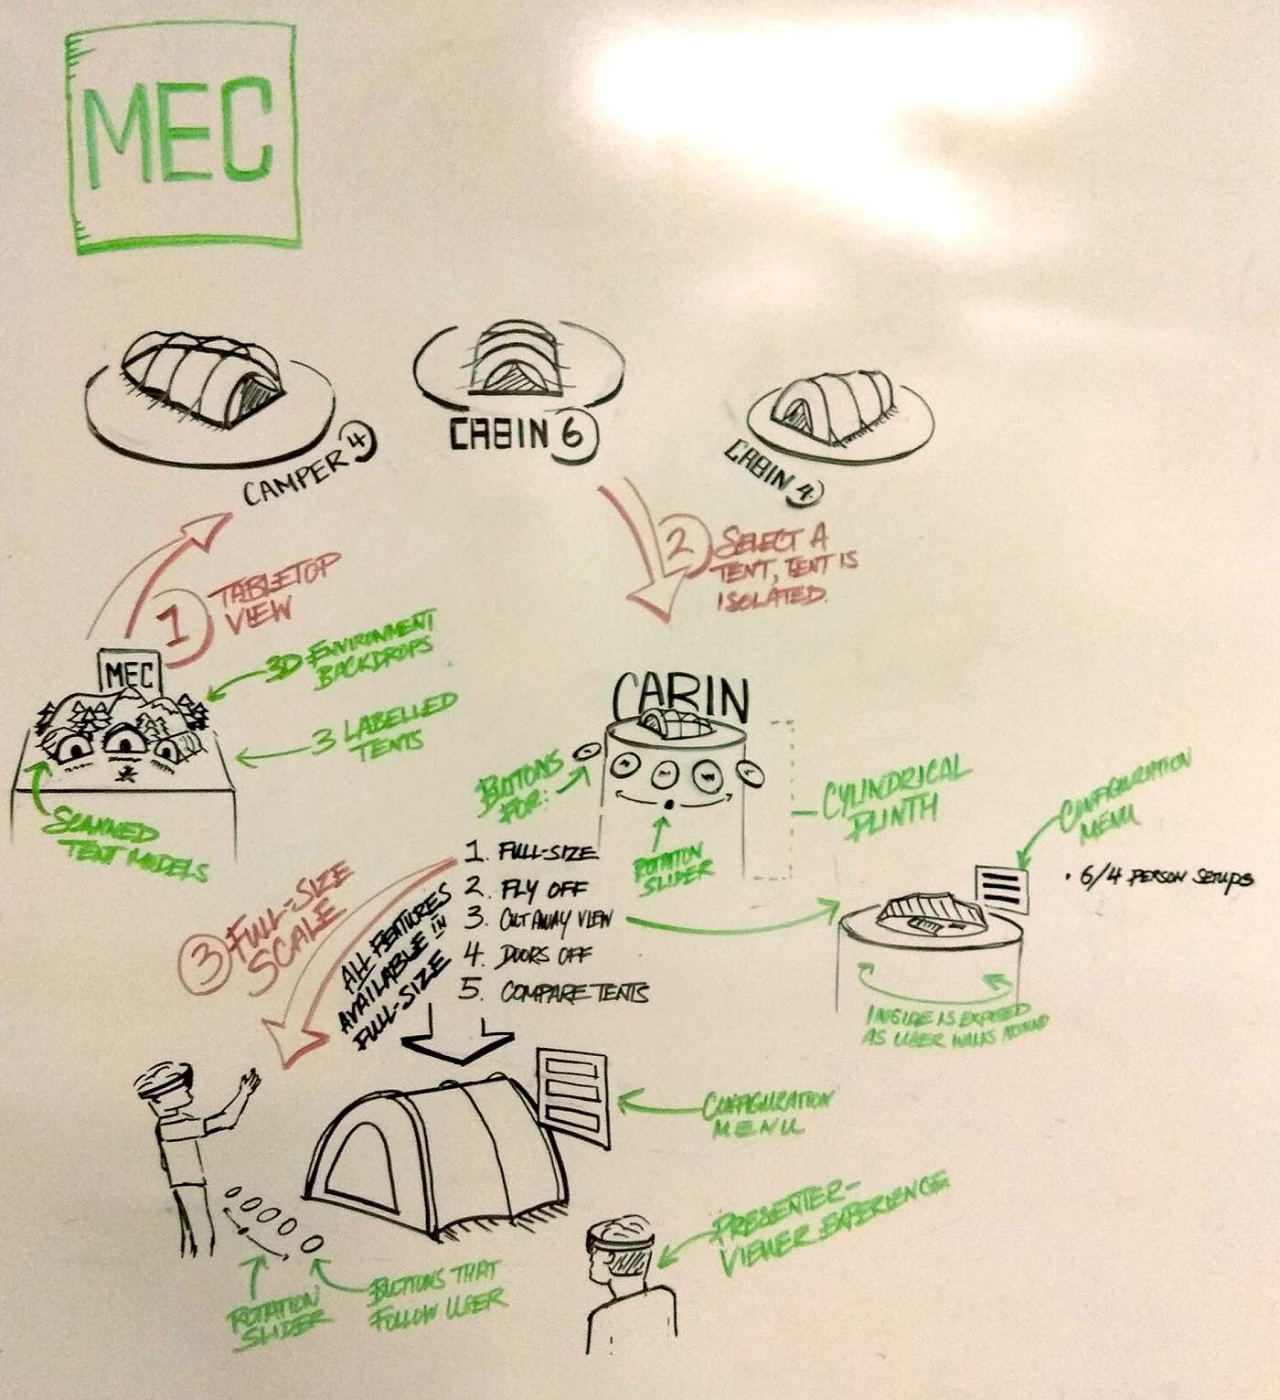 MEC
CAMPER 4
CABIN 6
CABIN 4
1 TABLETOP
VIEW
2 SELECT A
TENT, TENT IS
ISOLATED.
MEC
3D ENVIRONMENT
BACKDROPS
3 LABELLED
TENTS
SCANNED
TENT MODELS
CABIN
BUTTONS
FOR:
ROTATION
SLIDER
CYLINDRICAL
PLINTH
CONFIGURATION
MENU
• 6/4 PERSON SETUPS
1. FULL-SIZE
2. FLY OFF
3. CUT AWAY VIEW
4. DOORS OFF
5. COMPARE TENTS
3 FULL-SIZE
SCALE
ALL FEATURES
AVAILABLE IN
FULL-SIZE
INSIDE IS EXPOSED
AS USER WALKS AROUND
CONFIGURATION
MENU
PRESENTER-
VIEWER EXPERIENCE
ROTATION
SLIDER
BUTTONS THAT
FOLLOW USER